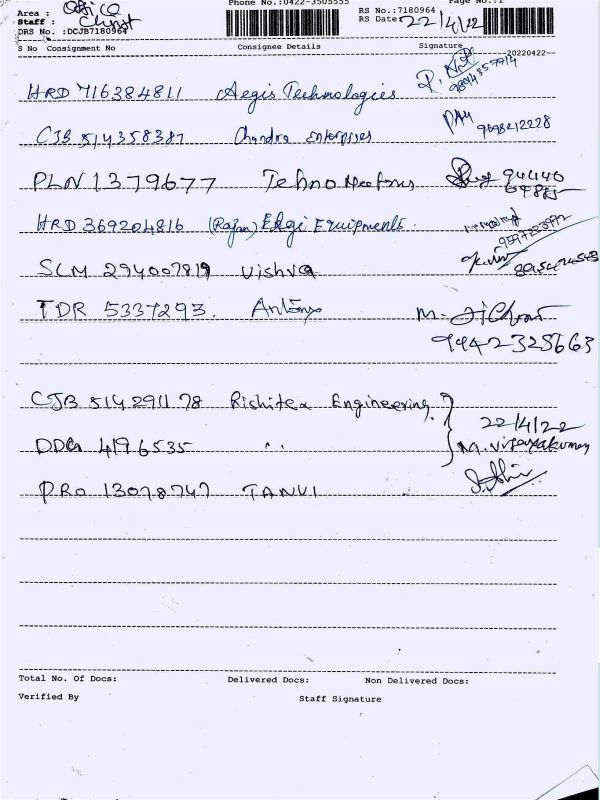 Phone No.:0422-3505555 Page No.:1
Area : Office RS No.:7180964
Staff : RS Date: 22/4/22
DRS No. :DCJB7180964
S No Consignment No Consignee Details Signature 20220422
HRD 716384811 Aegis Technologies
CJB 514358387 Chandra Enterprises PAY 9698212228
PLN 1379677 Tehno 94440
HRD 369204816 (Rajan) Elgi Equipments.
SLM 294007819 Vishva
TDR 5337293. Antony M.
9942325663
CJB 514291178 Rishitex Engineering. 22/4/22
DDG 4196535 " M. Vijayakumar
PRO 13078747 TANVI
Total No. Of Docs: Delivered Docs: Non Delivered Docs:
Verified By Staff Signature